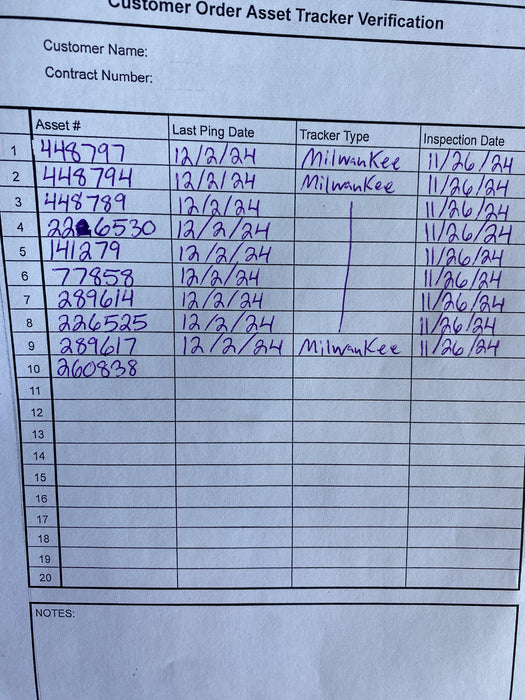 Customer Order Asset Tracker Verification
Customer Name:
Contract Number:
Asset # Last Ping Date Tracker Type Inspection Date
1 448797 12/2/24 Milwaukee 11/26/24
2 448794 12/2/24 Milwaukee 11/26/24
3 448789 12/2/24 11/26/24
4 226530 12/2/24 11/26/24
5 141279 12/2/24 11/26/24
6 77858 12/2/24 11/26/24
7 289614 12/2/24 11/26/24
8 226525 12/2/24 11/26/24
9 289617 12/2/24 Milwaukee 11/26/24
10 260838
11
12
13
14
15
16
17
18
19
20
NOTES: